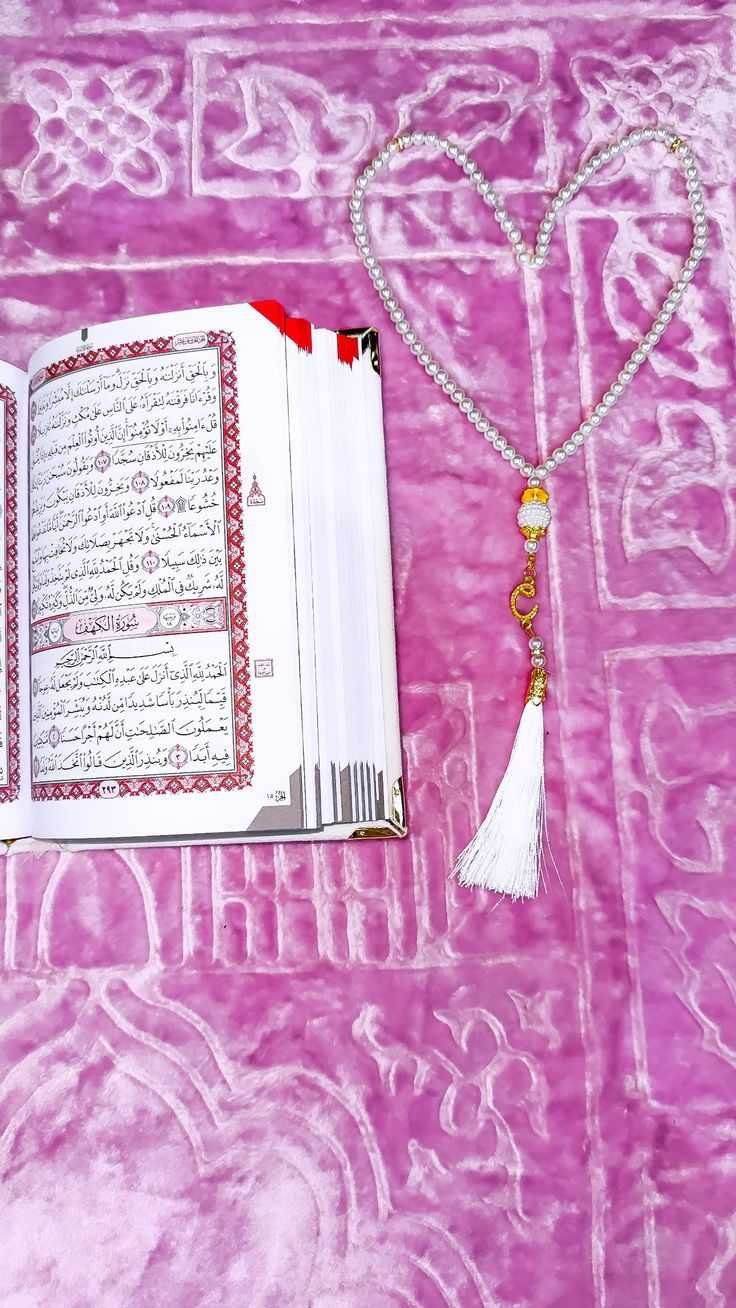 وَبِالْحَقِّ أَنْزَلْنَاهُ وَبِالْحَقِّ نَزَلَ وَمَا أَرْسَلْنَاكَ إِلَّا مُبَشِّرًا وَنَذِيرًا
وَقُرْءَانًا فَرَقْنَاهُ لِتَقْرَأَهُ عَلَى النَّاسِ عَلَىٰ مُكْثٍ وَنَزَّلْنَاهُ تَنزِيلًا
قُلْ ءَامِنُوا بِهِ أَوْ لَا تُؤْمِنُوا إِنَّ الَّذِينَ أُوتُوا الْعِلْمَ مِن قَبْلِهِ إِذَا يُتْلَىٰ
عَلَيْهِمْ يَخِرُّونَ لِلْأَذْقَانِ سُجَّدًا ١٠٧ وَيَقُولُونَ سُبْحَانَ رَبِّنَا إِن كَانَ
وَعْدُ رَبِّنَا لَمَفْعُولًا ١٠٨ وَيَخِرُّونَ لِلْأَذْقَانِ يَبْكُونَ وَيَزِيدُهُمْ
خُشُوعًا ۩ ١٠٩ قُلِ ادْعُوا اللَّهَ أَوِ ادْعُوا الرَّحْمَٰنَ أَيًّا مَّا تَدْعُوا فَلَهُ
الْأَسْمَاءُ الْحُسْنَىٰ وَلَا تَجْهَرْ بِصَلَاتِكَ وَلَا تُخَافِتْ بِهَا وَابْتَغِ
بَيْنَ ذَٰلِكَ سَبِيلًا ١١٠ وَقُلِ الْحَمْدُ لِلَّهِ الَّذِي لَمْ يَتَّخِذْ وَلَدًا وَلَمْ يَكُن
لَّهُ شَرِيكٌ فِي الْمُلْكِ وَلَمْ يَكُن لَّهُ وَلِيٌّ مِّنَ الذُّلِّ وَكَبِّرْهُ تَكْبِيرًا
سُورَةُ الْكَهْفِ
بِسْمِ اللَّهِ الرَّحْمَٰنِ الرَّحِيمِ
الْحَمْدُ لِلَّهِ الَّذِي أَنزَلَ عَلَىٰ عَبْدِهِ الْكِتَابَ وَلَمْ يَجْعَل لَّهُ عِوَجًا
قَيِّمًا لِّيُنذِرَ بَأْسًا شَدِيدًا مِّن لَّدُنْهُ وَيُبَشِّرَ الْمُؤْمِنِينَ الَّذِينَ
يَعْمَلُونَ الصَّالِحَاتِ أَنَّ لَهُمْ أَجْرًا حَسَنًا ٢ مَّاكِثِينَ
فِيهِ أَبَدًا ٣ وَيُنذِرَ الَّذِينَ قَالُوا اتَّخَذَ اللَّهُ وَلَدًا
٢٩٣
الجزء ١٥